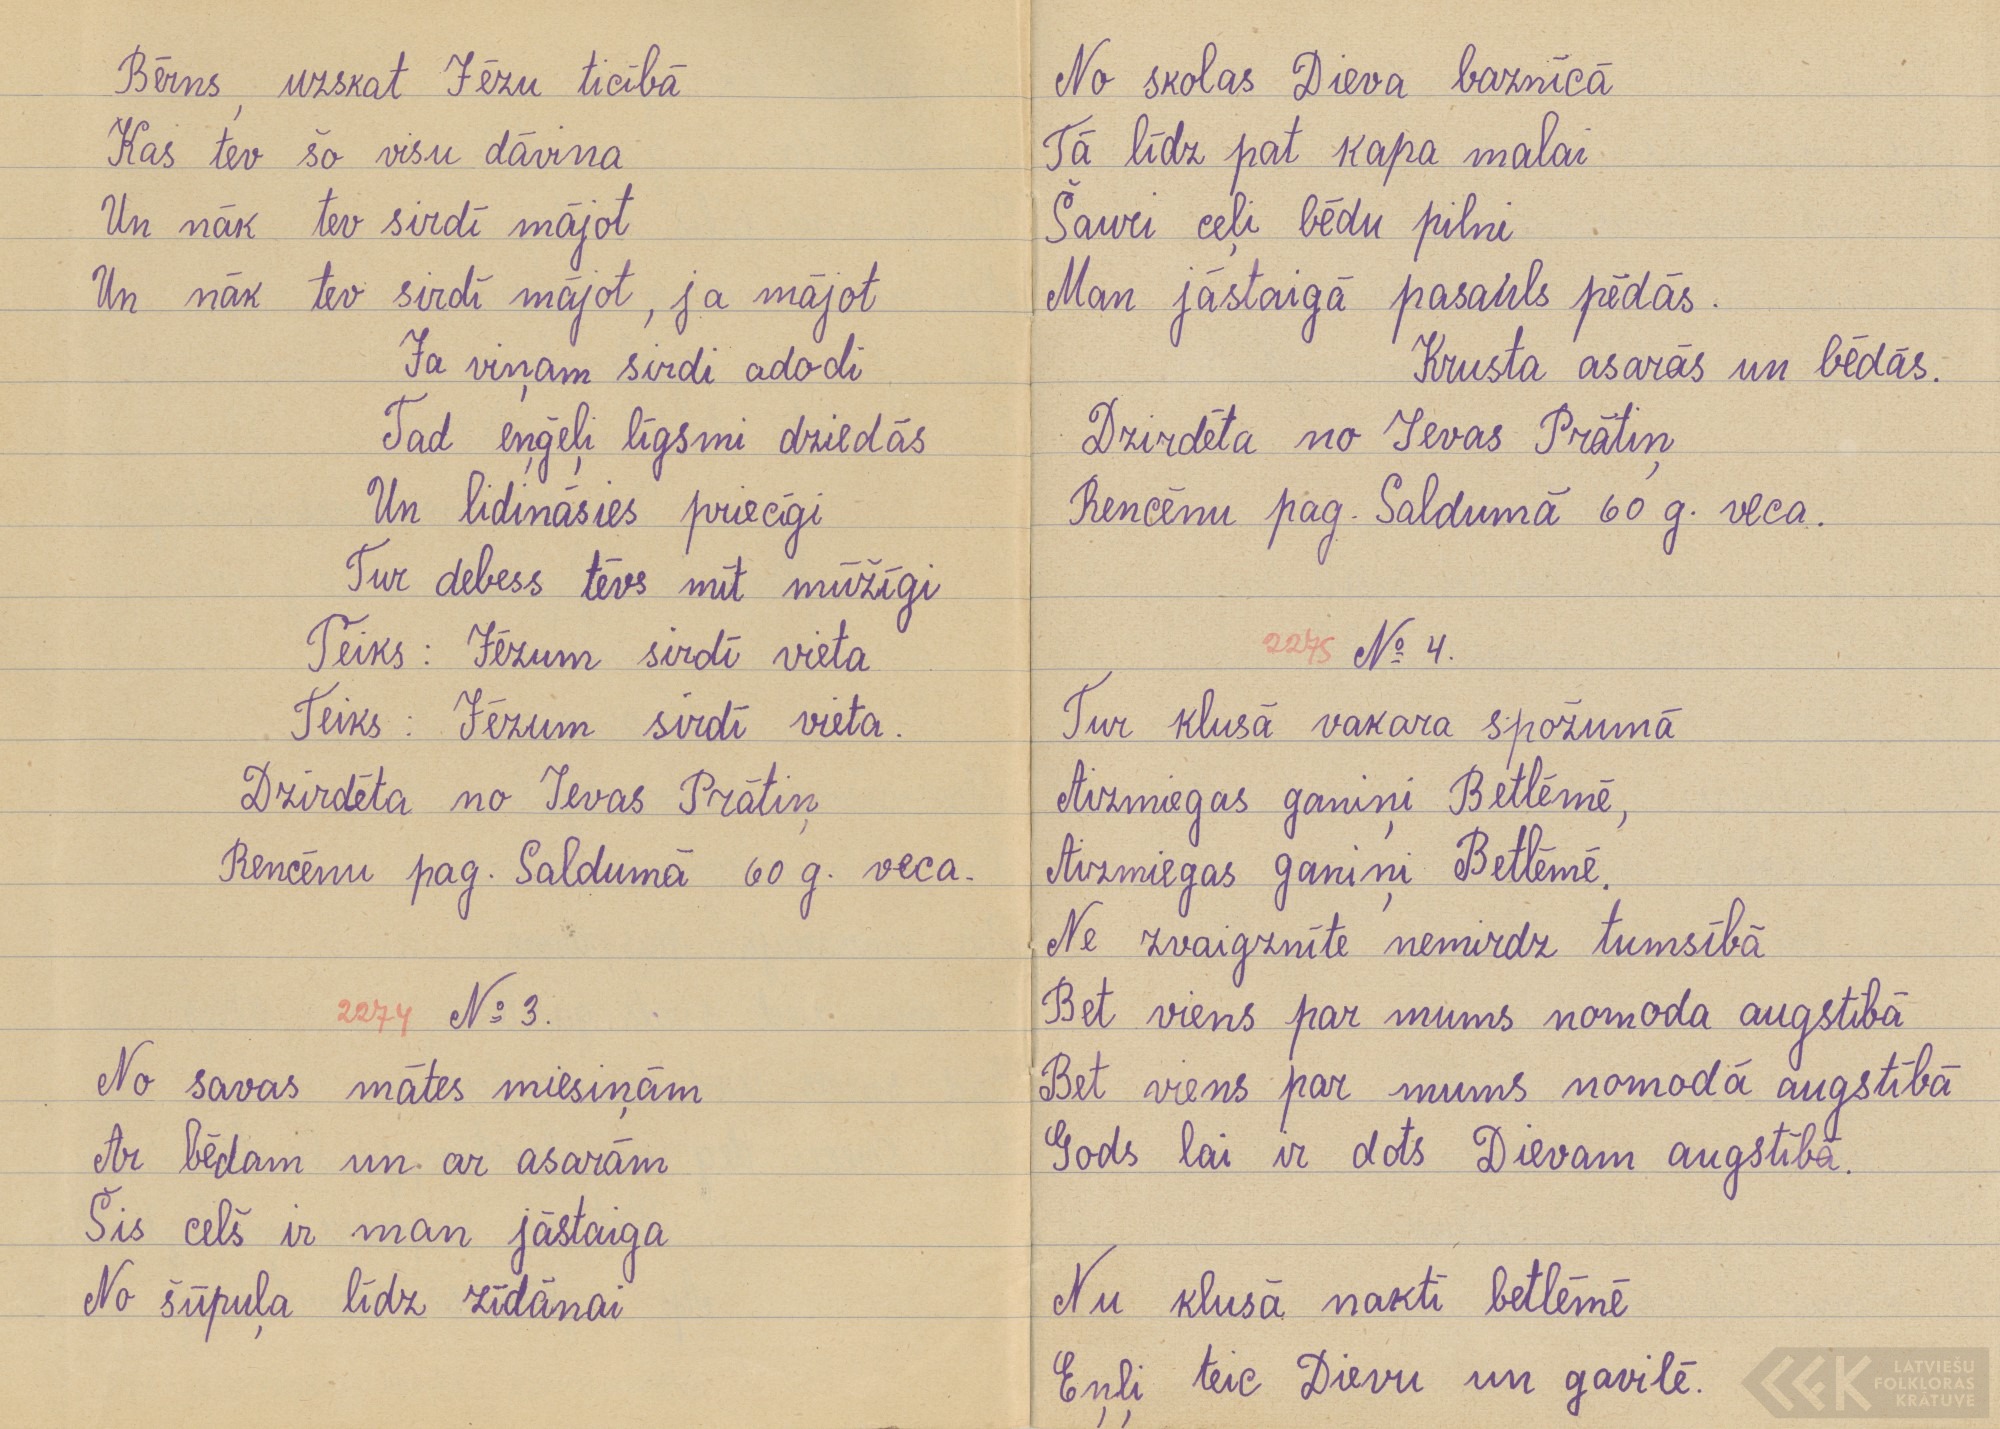 Bērns, uzskat Jēzu ticībā
Kas tev šo visu dāvina
Un nāk tev sirdī mājot
Un nāk tev sirdī mājot, ja mājot
Ja viņam sirdi adodi
Tad eņģeļi līgsmi dziedās
Un lidināsies priecīgi
Tur debess tēvs mīt mūžīgi
Teiks: Jēzum sirdī vieta
Teiks: Jēzum sirdī vieta.
Dzirdēta no Ievas Prātiņ
Rencēnu pag. Saldumā 60 g. veca.
2274 № 3.
No savas mātes miesiņām
Ar bēdam un ar asarām
Šis celš ir man jāstaiga
No šūpuļa līdz zīdānai
No skolas Dieva baznīcā
Tā līdz pat kapa malai
Šauri ceļi bēdu pilni
Man jāstaigā pasauls pēdās.
Krusta asarās un bēdās.
Dzirdēta no Ievas Prātiņ
Rencēnu pag. Saldumā 60 g. veca.
2275 № 4.
Tur klusā vakara spožumā
Aizmiegas ganiņi Betlēmē,
Aizmiegas ganiņi Betlēmē.
Ne zvaigznīte nemirdz tumsībā
Bet viens par mums nomoda augstībā
Bet viens par mums nomodā augstībā
Gods lai ir dots Dievam augstībā.
Nu klusā naktī betlēmē
Eņļi teic Dievu un gavilē.
LATVIEŠU
FOLKLORAS
KRĀTUVE